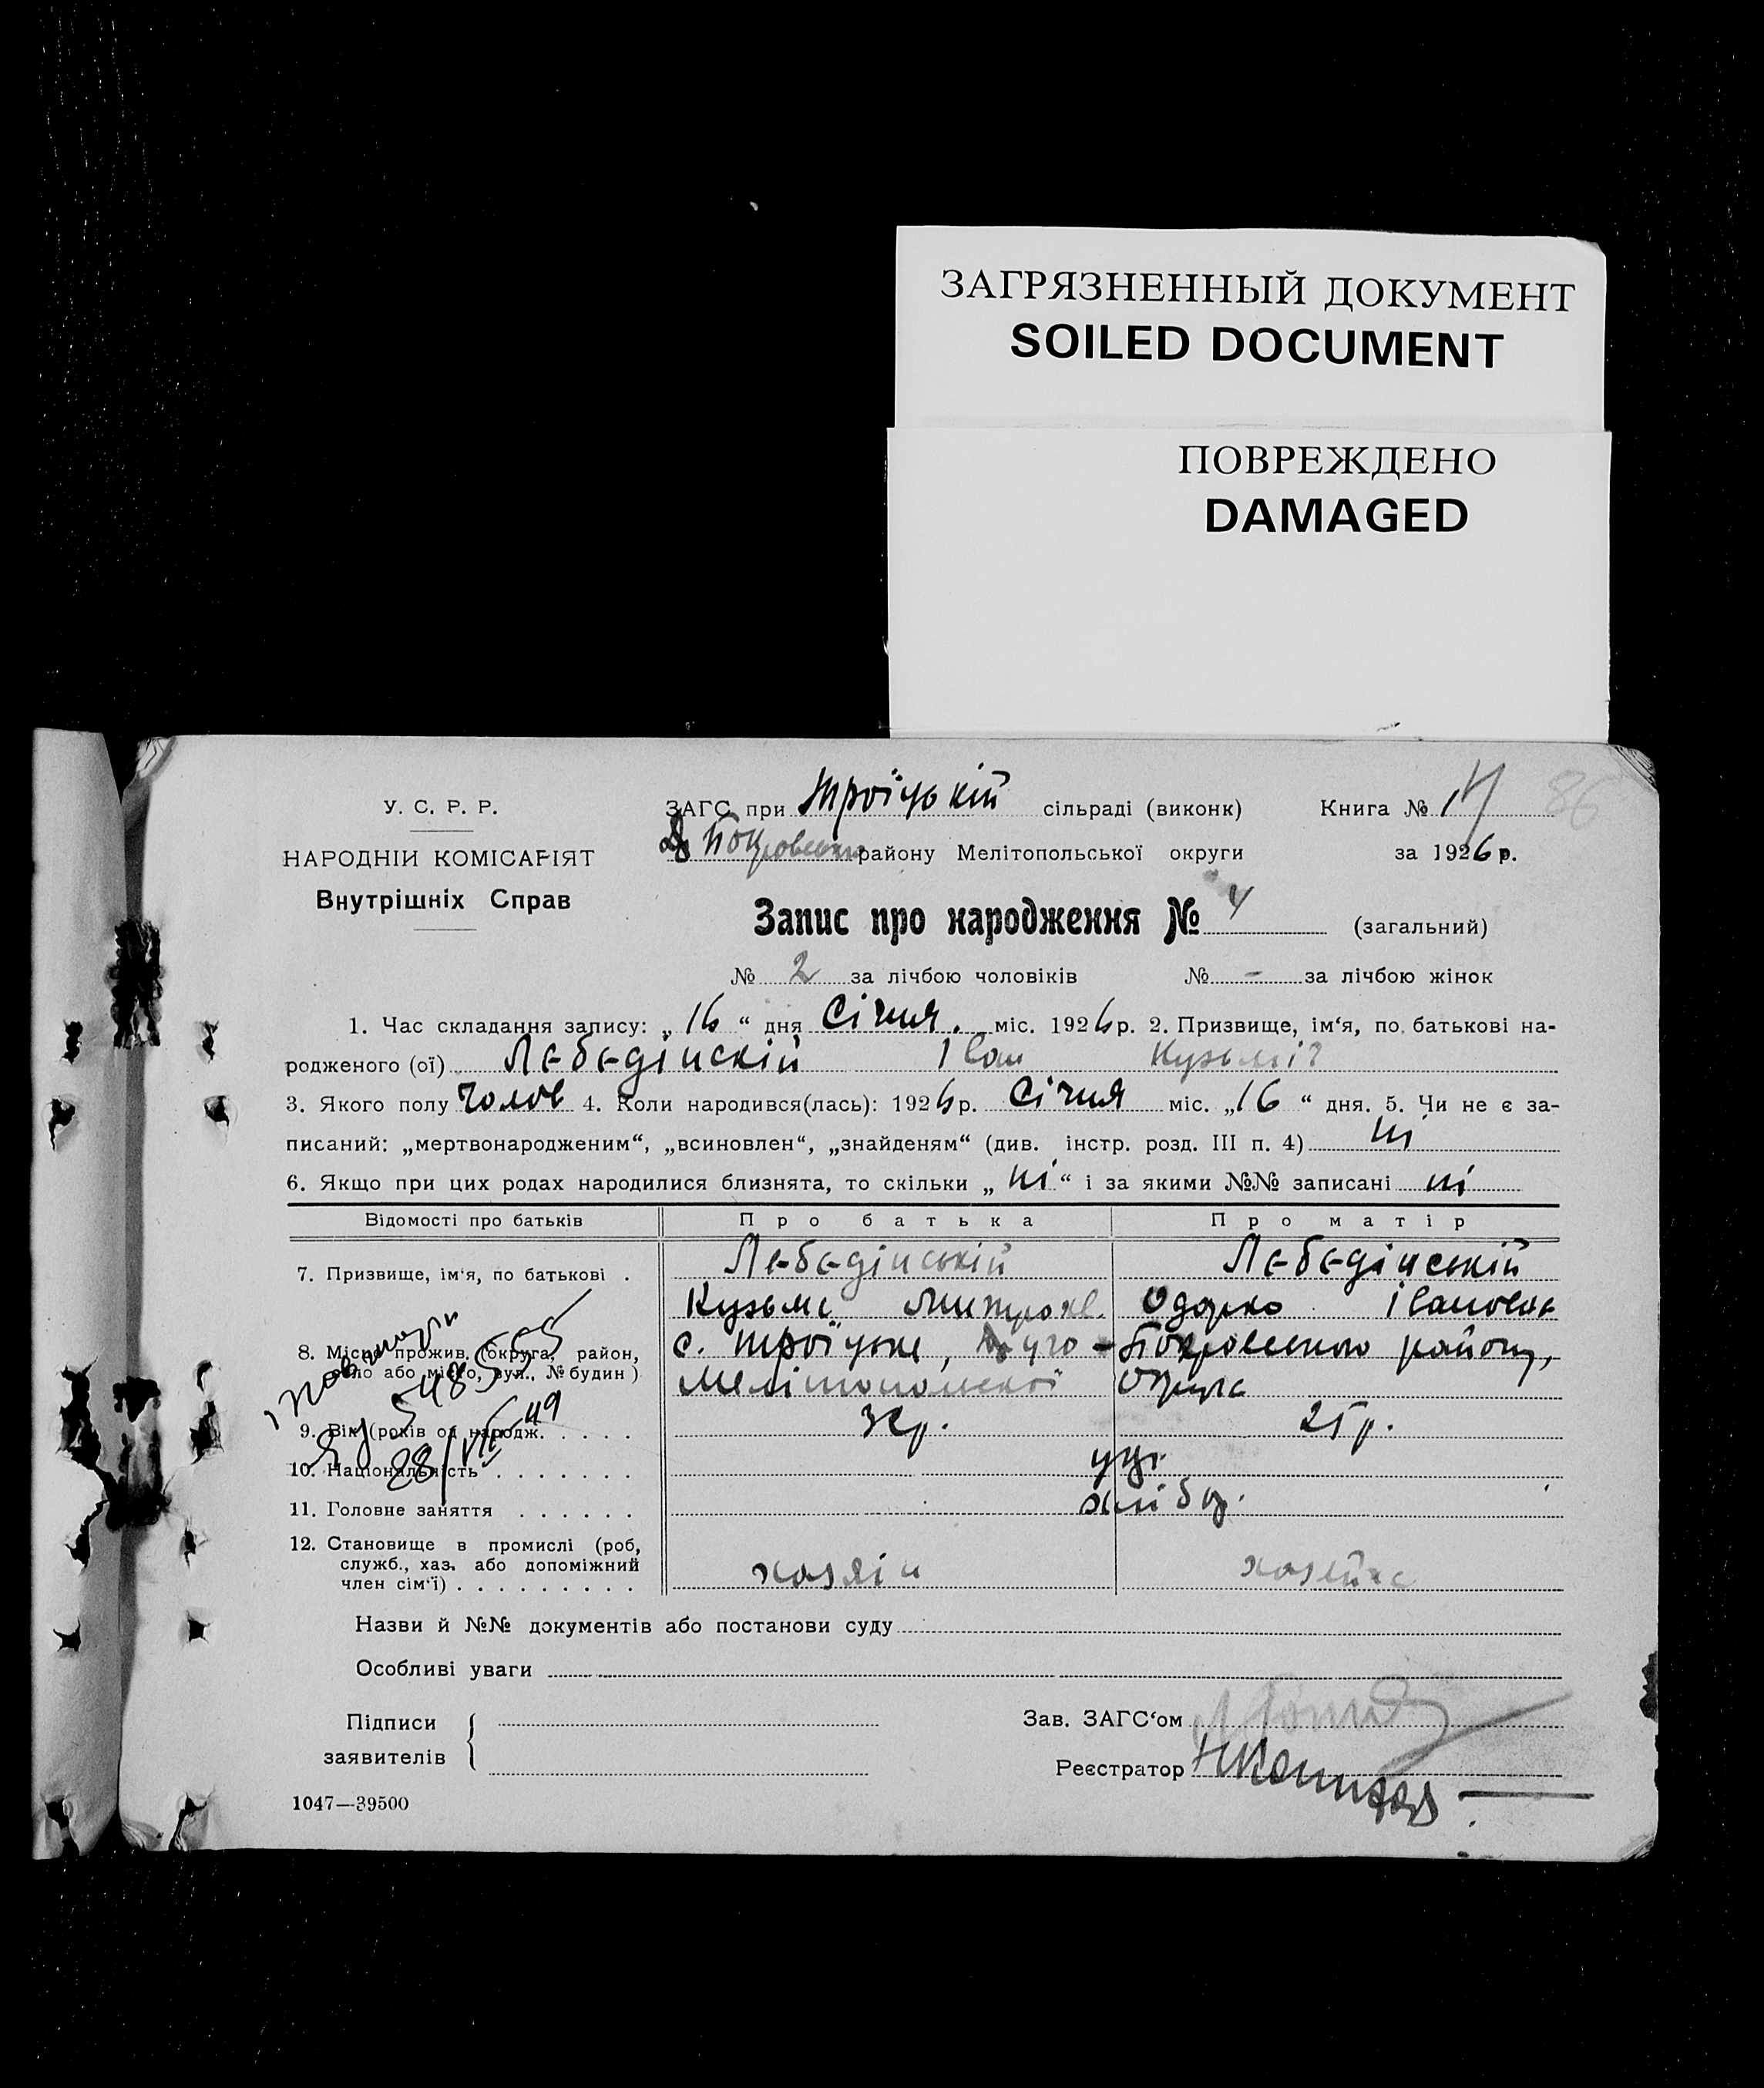 ЗАГРЯЗНЕННЫЙ ДОКУМЕНТ
SOILED DOCUMENT
ПОВРЕЖДЕНО
DAMAGED
У. С. Р. Р.
НАРОДНІЙ КОМІСАРІЯТ
Внутрішніх Справ
ЗАГС при Троїцькій сільраді (виконк) Книга № 86
району Мелітопольської округи за 1926 р.
Запис про народження № 4 (загальний)
№ 2 за лічбою чоловіків № - за лічбою жінок
1. Час складання запису: „16“ дня Січня. міс. 1926 р. 2. Призвище, ім‘я, по батькові на-
родженого (ої) Лєбєдінскій Іван Кузьміч
3. Якого полу Чолов 4. Коли народився(лась): 1926 р. Січня міс. „16“ дня. 5. Чи не є за-
писаний: „мертвонародженим“, „всиновлен“, „знайденям“ (див. інстр. розд. III п. 4) ні
6. Якщо при цих родах народилися близнята, то скільки „ні“ і за якими №№ записані ні
Відомості про батьків Про батька Про матір
7. Призвище, ім‘я, по батькові . Лєбєдінській Лєбєдінській
Кузьма Митроф. Одарка Івановна
8. Місце прожив. (округа, район, с. Троїцьке, Ново-Покровського району,
село або місто, вул., № будин) Мелітопольскої Округа
9. Вік (років од народж. . . . . . 25 р.
10. Національність . . . . . . . укр.
11. Головне заняття . . . . . . хлібор.
12. Становище в промислі (роб,
служб., хаз. або допоміжний
член сім‘ї) . . . . . . . . . хозяїн хозяйка
548555
28/VII-49
Назви й №№ документів або постанови суду
Особливі уваги
Підписи
заявителів
Зав. ЗАГС‘ом
Реєстратор
1047—39500